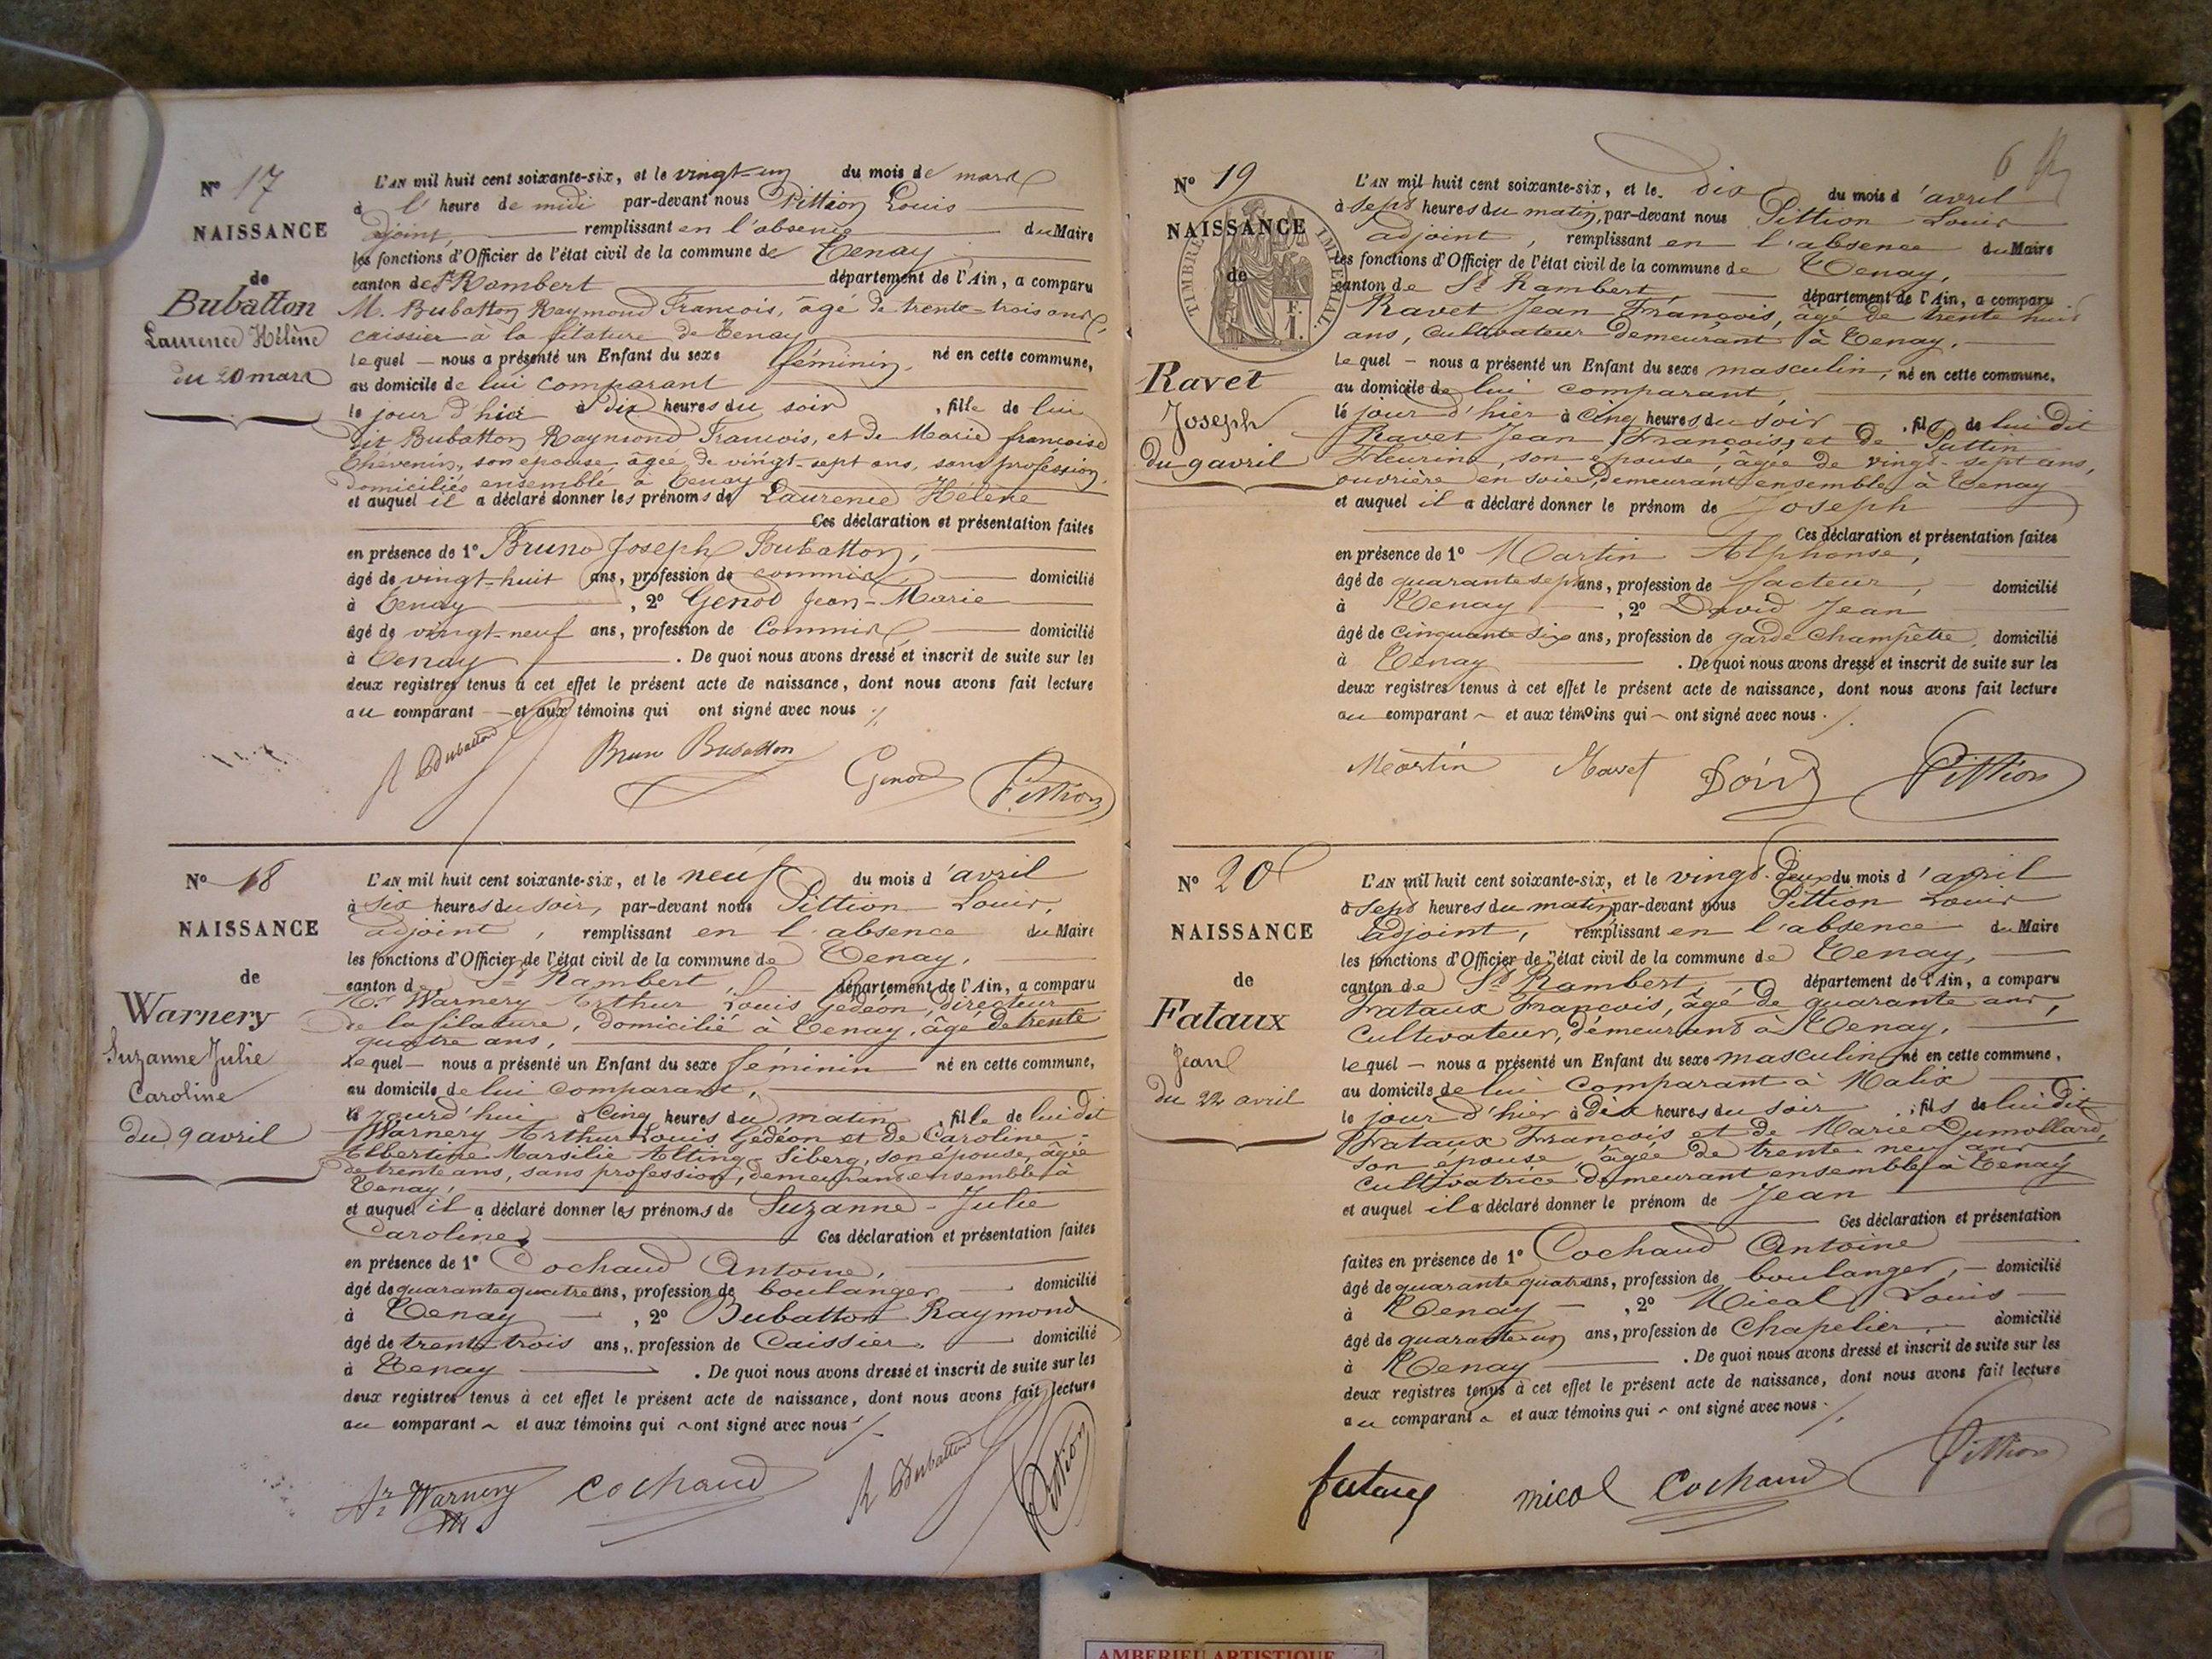 N° 17
NAISSANCE
de
Bubatton
Laurence Hélène
du 20 mars
L'AN mil huit cent soixante-six, et le vingt-un du mois de mars
à l'heure de midi par-devant nous Pittion Louis
adjoint, remplissant en l'absence du Maire
les fonctions d'Officier de l'état civil de la commune de Tenay
canton de St Rambert département de l'Ain, a comparu
M. Bubatton Raymond Francois, âgé de trente-trois ans,
caissier à la filature de Tenay
lequel nous a présenté un Enfant du sexe féminin, né en cette commune,
au domicile de lui comparant
le jour d'hier à dix heures du soir, fille de lui
dit Bubatton Raymond Francois, et de Marie françoise
Thévenin, son épouse, âgée de vingt-sept ans, sans profession,
domiciliés ensemble à Tenay
et auquel il a déclaré donner les prénoms de Laurence Hélène
Ces déclaration et présentation faites
en présence de 1° Bruno Joseph Bubatton,
âgé de vingt-huit ans, profession de commis domicilié
à Tenay, 2° Genod Jean-Marie
âgé de vingt-neuf ans, profession de Commis domicilié
à Tenay. De quoi nous avons dressé et inscrit de suite sur les
deux registres tenus à cet effet le présent acte de naissance, dont nous avons fait lecture
au comparant et aux témoins qui ont signé avec nous ./.
R Bubatton Bruno Bubatton Genod Pittion
N° 18
NAISSANCE
de
Warnery
Suzanne Julie
Caroline
du 9 avril
L'AN mil huit cent soixante-six, et le neuf du mois d'avril
à six heures du soir, par-devant nous Pittion Louis,
adjoint, remplissant en l'absence du Maire
les fonctions d'Officier de l'état civil de la commune de Tenay,
canton de St Rambert, département de l'Ain, a comparu
Mr. Warnery Arthur Louis Gédéon, directeur
de la filature, domicilié à Tenay, âgé de trente
quatre ans,
Lequel nous a présenté un Enfant du sexe féminin né en cette commune,
au domicile de lui comparant,
le jourd'hui à cinq heures du matin, fille de lui dit
Warnery Arthur Louis Gédéon et de Caroline-
Albertine Marsilie Alting-Siberg, son épouse, âgée
de trente ans, sans profession, demeurant ensemble à
Tenay,
et auquel il a déclaré donner les prénoms de Suzanne-Julie
Caroline. Ces déclaration et présentation faites
en présence de 1° Cochaud Antoine,
âgé de quarante quatre ans, profession de boulanger domicilié
à Tenay, 2° Bubatton Raymond
âgé de trente trois ans, profession de Caissier, domicilié
à Tenay. De quoi nous avons dressé et inscrit de suite sur les
deux registres tenus à cet effet le présent acte de naissance, dont nous avons fait lecture
au comparant et aux témoins qui ont signé avec nous ./.
Ar Warnery Cochaud R Bubatton Pittion
6
N° 19
NAISSANCE
de
TIMBRE IMPERIAL
F.
1.
Ravet
Joseph
du 9 avril
L'AN mil huit cent soixante-six, et le dix du mois d'avril
à sept heures du matin, par-devant nous Pittion Louis
adjoint, remplissant en l'absence du Maire
les fonctions d'Officier de l'état civil de la commune de Tenay,
canton de St Rambert département de l'Ain, a comparu
Ravet Jean François, âgé de trente huit
ans, Cultivateur demeurant à Tenay,
lequel nous a présenté un Enfant du sexe masculin, né en cette commune,
au domicile de lui comparant,
le jour d'hier à cinq heures du soir, fils de lui dit
Ravet Jean François, et de Pattin
Fleurine, son épouse, âgée de vingt-sept ans,
ouvrière en soie, demeurant ensemble à Tenay
et auquel il a déclaré donner le prénom de Joseph
Ces déclaration et présentation faites
en présence de 1° Martin Alphonse,
âgé de quarante sept ans, profession de facteur, domicilié
à Tenay, 2° David Jean
âgé de cinquante six ans, profession de garde champêtre, domicilié
à Tenay. De quoi nous avons dressé et inscrit de suite sur les
deux registres tenus à cet effet le présent acte de naissance, dont nous avons fait lecture
au comparant et aux témoins qui ont signé avec nous ./.
Martin Ravet David Pittion
N° 20
NAISSANCE
de
Fataux
Jean
du 22 avril
L'AN mil huit cent soixante-six, et le vingt-deux du mois d'avril
à sept heures du matin par-devant nous Pittion Louis
adjoint, remplissant en l'absence du Maire
les fonctions d'Officier de l'état civil de la commune de Tenay,
canton de St Rambert, département de l'Ain, a comparu
Fataux Francois, âgé de quarante ans,
Cultivateur, demeurant à Tenay,
lequel nous a présenté un Enfant du sexe masculin, né en cette commune,
au domicile de lui comparant à Malix
le jour d'hier à dix heures du soir, fils de lui dit
Fataux Francois et de Marie Dumollard,
son épouse, âgée de trente neuf ans
Cultivatrice demeurant ensemble à Tenay
et auquel il a déclaré donner le prénom de Jean
Ces déclaration et présentation
faites en présence de 1° Cochaud Antoine
âgé de quarante quatre ans, profession de boulanger, domicilié
à Tenay, 2° Micol Louis
âgé de quarante un ans, profession de Chapelier, domicilié
à Tenay. De quoi nous avons dressé et inscrit de suite sur les
deux registres tenus à cet effet le présent acte de naissance, dont nous avons fait lecture
au comparant et aux témoins qui ont signé avec nous ./.
fataux micol Cochaud Pittion
AMBERIEU ARTISTIQUE